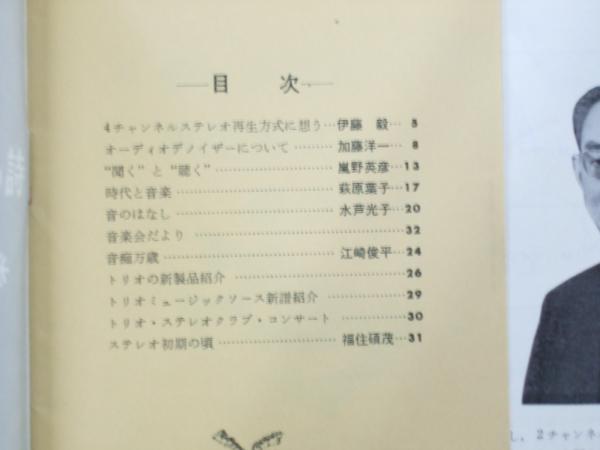 目 次
4チャンネルステレオ再生方式に想う…伊藤 毅… 3
オーディオデノイザーについて………加藤洋一… 8
“聞く”と“聴く”………………………嵐野英彦…13
時代と音楽………………………………萩原葉子…17
音のはなし………………………………水芦光子…20
音楽会だより………………………………………32
音痴万歳…………………………………江崎俊平…24
トリオの新製品紹介………………………………26
トリオミュージックソース新譜紹介………………29
トリオ・ステレオクラブ・コンサート……………30
ステレオ初期の頃………………………福住碩茂…31
し，2チャンネル